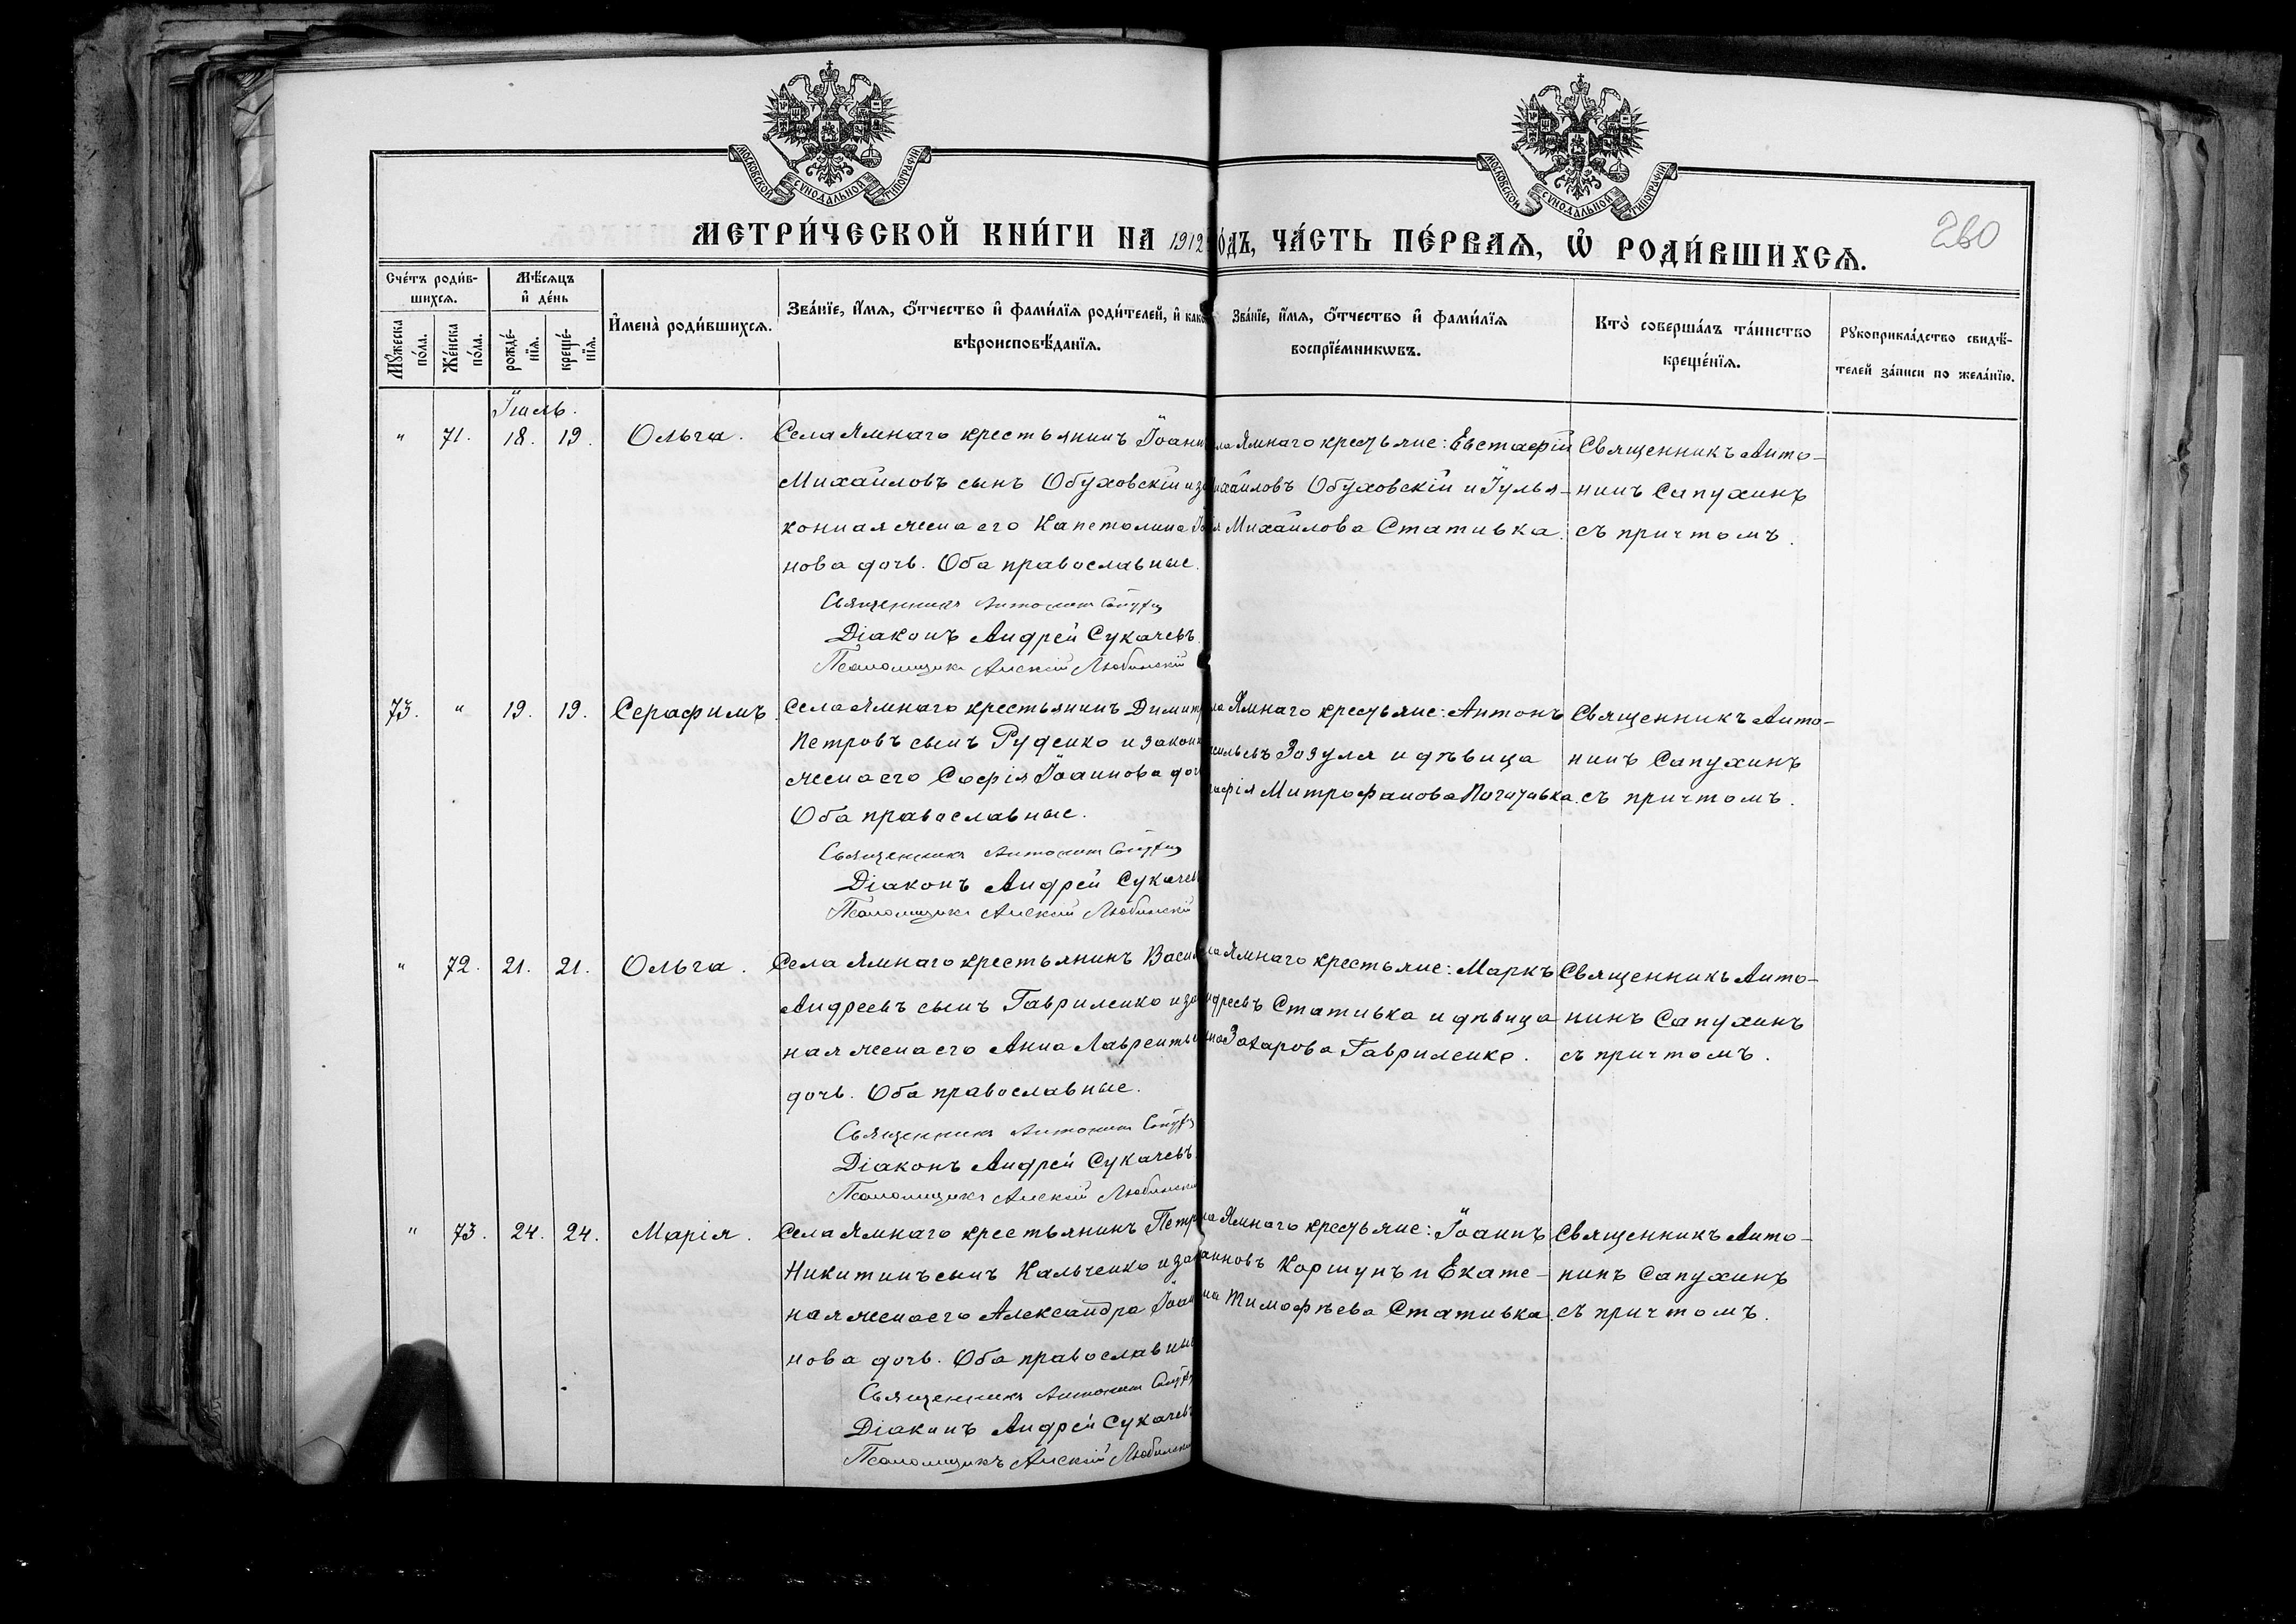 МОСКОВСКОЙ СѴНОДАЛЬНОЙ ТИПОГРАФІИ
МОСКОВСКОЙ СѴНОДАЛЬНОЙ ТИПОГРАФІИ
МЕТРИ́ЧЕСКОЙ КНИ́ГИ НА 1912 ГО́ДЪ, ЧА́СТЬ ПЕ́РВАѦ, Ѡ҆ РОДИ́ВШИХСѦ.
260
Сче́тъ роди́в-
шихсѧ.
Мꙋ́жеска по́ла.
Же́нска по́ла.
Мѣ́сяцъ
и҆ де́нь
рожде́-
нїѧ.
креще́-
нїѧ.
И҆мена̀ роди́вшихсѧ.
Зва́нїе, и҆́мѧ, ѻ҆́тчество и҆ фами́лїѧ роди́телей, и҆ како
вѣроисповѣ́данїѧ.
Зва́нїе, и҆́мѧ, ѻ҆́тчество и҆ фами́лїѧ
воспрїе́мникѡвъ.
Кто̀ соверша́лъ та́инство
креще́нїѧ.
Рꙋкоприкла́дство свидѣ́-
телей за́писи по жела́нїю.
Іюль.
" 71. 18. 19. Ольга.
Села Ямнаго крестьянинъ Іоанн
Михайловъ сынъ Обуховскій и за
конная жена его Капетолина Іо
нова дочь. Оба православные.
Священникъ Антонинъ Сапухин
Діаконъ Андрей Сукачевъ.
Псаломщикъ Алексій Любинскій
ла Ямнаго крестьяне: Евстафій
ихайловъ Обуховскій и Іулья-
я Михайлова Стативка.
Священникъ Анто-
нинъ Сапухинъ
съ причтомъ.
73. " 19. 19. Серафимъ.
Села Ямнаго крестьянинъ Димитр
Петровъ сынъ Руденко и закон
жена его Софія Іоаннова доч
Оба православные.
Священникъ Антонинъ Сапухин
Діаконъ Андрей Сукачев
Псаломщикъ Алексій Любинскій
ла Ямнаго крестьяне: Антонъ
сильевъ Зозуля и дѣвица
офія Митрофанова
Священникъ Анто-
нинъ Сапухинъ
съ причтомъ.
" 72. 21. 21. Ольга.
Села Ямнаго крестьянинъ Васил
Андреевъ сынъ Гавриленко и за
ная жена его Анна Лаврентье
дочь. Оба православные.
Священникъ Антонинъ Сапухин
Діаконъ Андрей Сукачевъ
Псаломщикъ Алексій Любински
ла Ямнаго крестьяне: Маркъ
ндреевъ Стативка и дѣвица
на Захарова Гавриленко.
Священникъ Анто-
нинъ Сапухинъ
съ причтомъ.
" 73. 24. 24. Марія.
Села Ямнаго крестьянинъ Петр
Никитинъ сынъ Кальченко и зак
ная жена его Александра Іоан
нова дочь. Оба православны
Священникъ Антонинъ Сапухин
Діаконъ Андрей Сукачевъ
Псаломщикъ Алексій Любински
ла Ямнаго крестьяне: Іоаннъ
анновъ Коршунъ и Екате-
на Тимофѣева Стативка.
Священникъ Анто-
нинъ Сапухинъ
съ причтомъ.